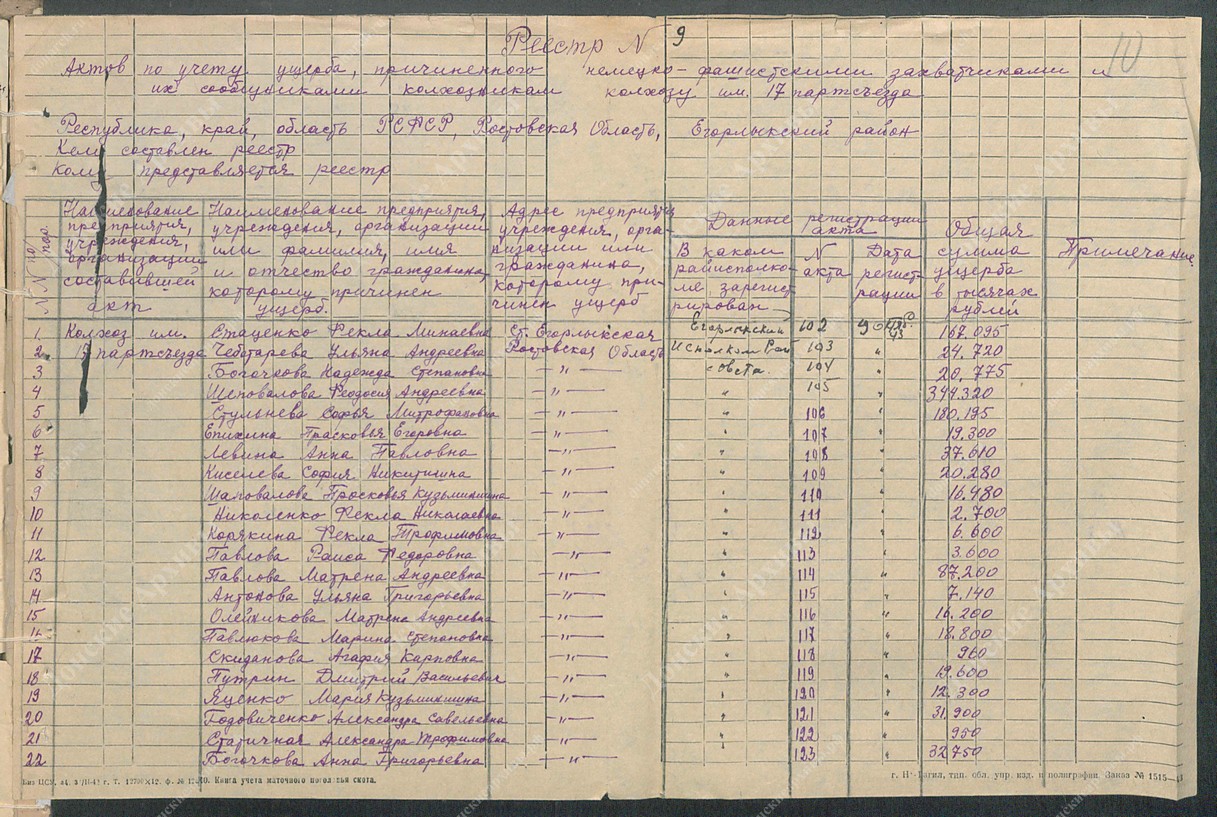 Реестр N 9
10
Актов по учету ущерба, причиненного немецко-фашистскими захватчиками и
их сообщниками колхозникам колхозу им. 17 партсъезда
Республика, край, область РСФСР, Ростовская Область, Егорлыкский район
Кем составлен реестр
Кому представляется реестр
NN по/пор.
Наименование предприятия, учреждения, организации составившей акт
Наименование предприятия, учреждения, организации или фамилия, имя и отчество гражданина, которому причинен ущерб.
Адрес предприятия учреждения, организации или гражданина, которому причинен ущерб
Данные регистрации акта
В каком райисполкоме зарегистрирован
N акта
Дата регистрации
Общая сумма ущерба в тысячах рублей
Примечание
1. Колхоз им. Стаценко Фекла Минаевна Ст. Егорлыкская Егорлыкский 102 9 167.095
2. 17 партсъезда Чеботарева Ульяна Андреевна Ростовская Область Исполком Рай 103 " 24.720
3 Богочкова Надежда Степановна — " — совета. 104 " 20.775
4 Шеповалова Феодосия Андреевна — " — " 105 " 344.320
5 Стульнева Софья Митрофановна — " — " 106 " 180.195
6 Епихина Прасковья Егоровна — " — " 107 " 19.300
7 Левина Анна Павловна — " — " 108 " 37.610
8 Киселева София Никитишна — " — " 109 " 20.280
9 Шаповалова Просковья Кузьминишна — " — " 110 " 16.480
10 Николенко Фекла Николаевна — " — " 111 " 2.700
11 Корякина Фекла Трофимовна — " — " 112 " 6.600
12 Павлова Раиса Федоровна — " — " 113 " 3.600
13 Павлова Матрена Андреевна — " — " 114 " 87.200
14 Антонова Ульяна Григорьевна — " — " 115 " 7.140
15 Олейникова Матрена Андреевна — " — " 116 " 16.200
16 Павлюкова Марина Степановна — " — " 117 " 18.800
17 Скиданова Агафия Карповна — " — " 118 " 960
18 Путрин Дмитрий Васильевич — " — " 119 " 19.600
19 Яценко Мария Кузьминишна — " — " 120 " 12.300
20 Годовиченко Александра Савельевна — " — " 121 " 31.900
21 Статичная Александра Трофимовна — " — " 122 " 950
22 Богочкова Анна Григорьевна — " — " 123 " 32750
Книга учета маточного поголовья скота.
г. Н-Тагил, тип. обл. упр. изд. и полиграфии. Заказ № 1515—